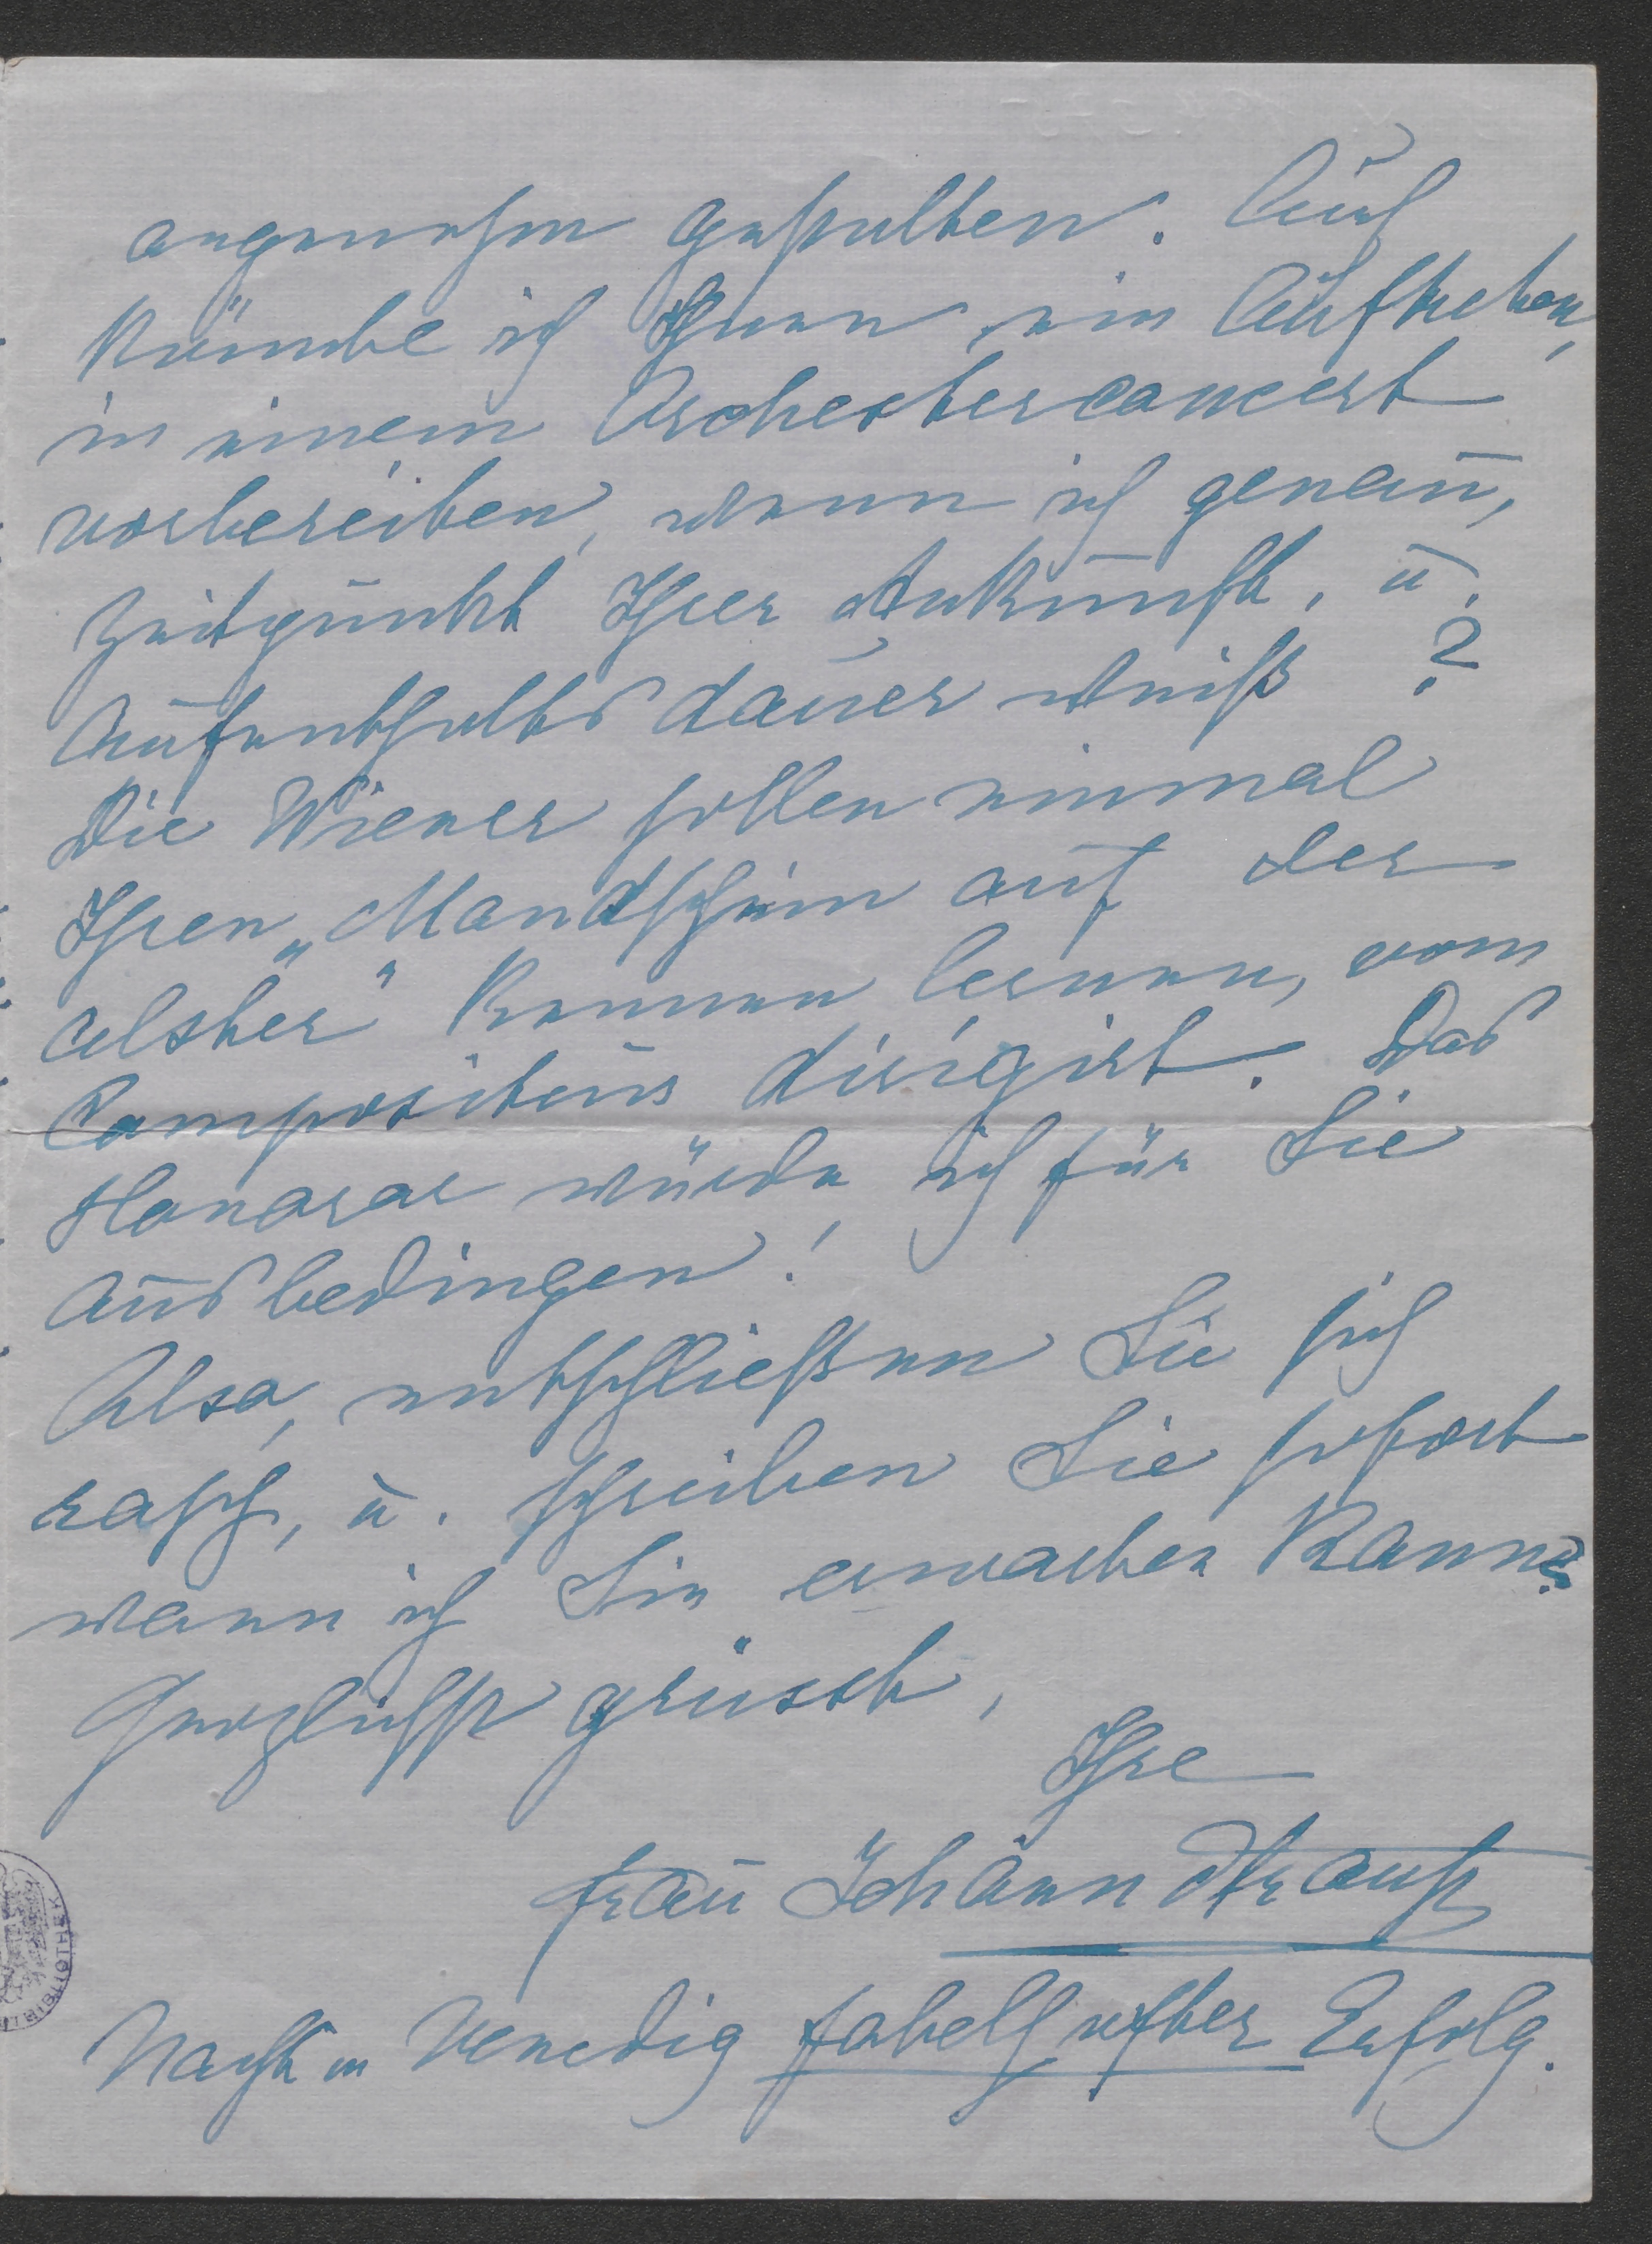 angenehm gestalten. Auch
könnte ich Ihnen ein Auftreten,
in einem Orchesterconcert
vorbereiten, wenn ich genau,
Zeitpunkt Ihrer Ankunft, u.
Aufenthaltsdauer weiß ?
Die Wiener sollen einmal
Ihren „Mondschein auf der
Alster" kennen lernen, vom
Compositeur dirigirt. Das
Honorar würde ich für Sie
ausbedingen!
Also, entschließen Sie sich
rasch, u. schreiben Sie sofort
wann ich Sie erwarten kann?
Herzlichst grüsst,
Ihre
Frau Johann Strauß
Nacht in Venedig fabelhafter Erfolg.
BIBLIOTHEK